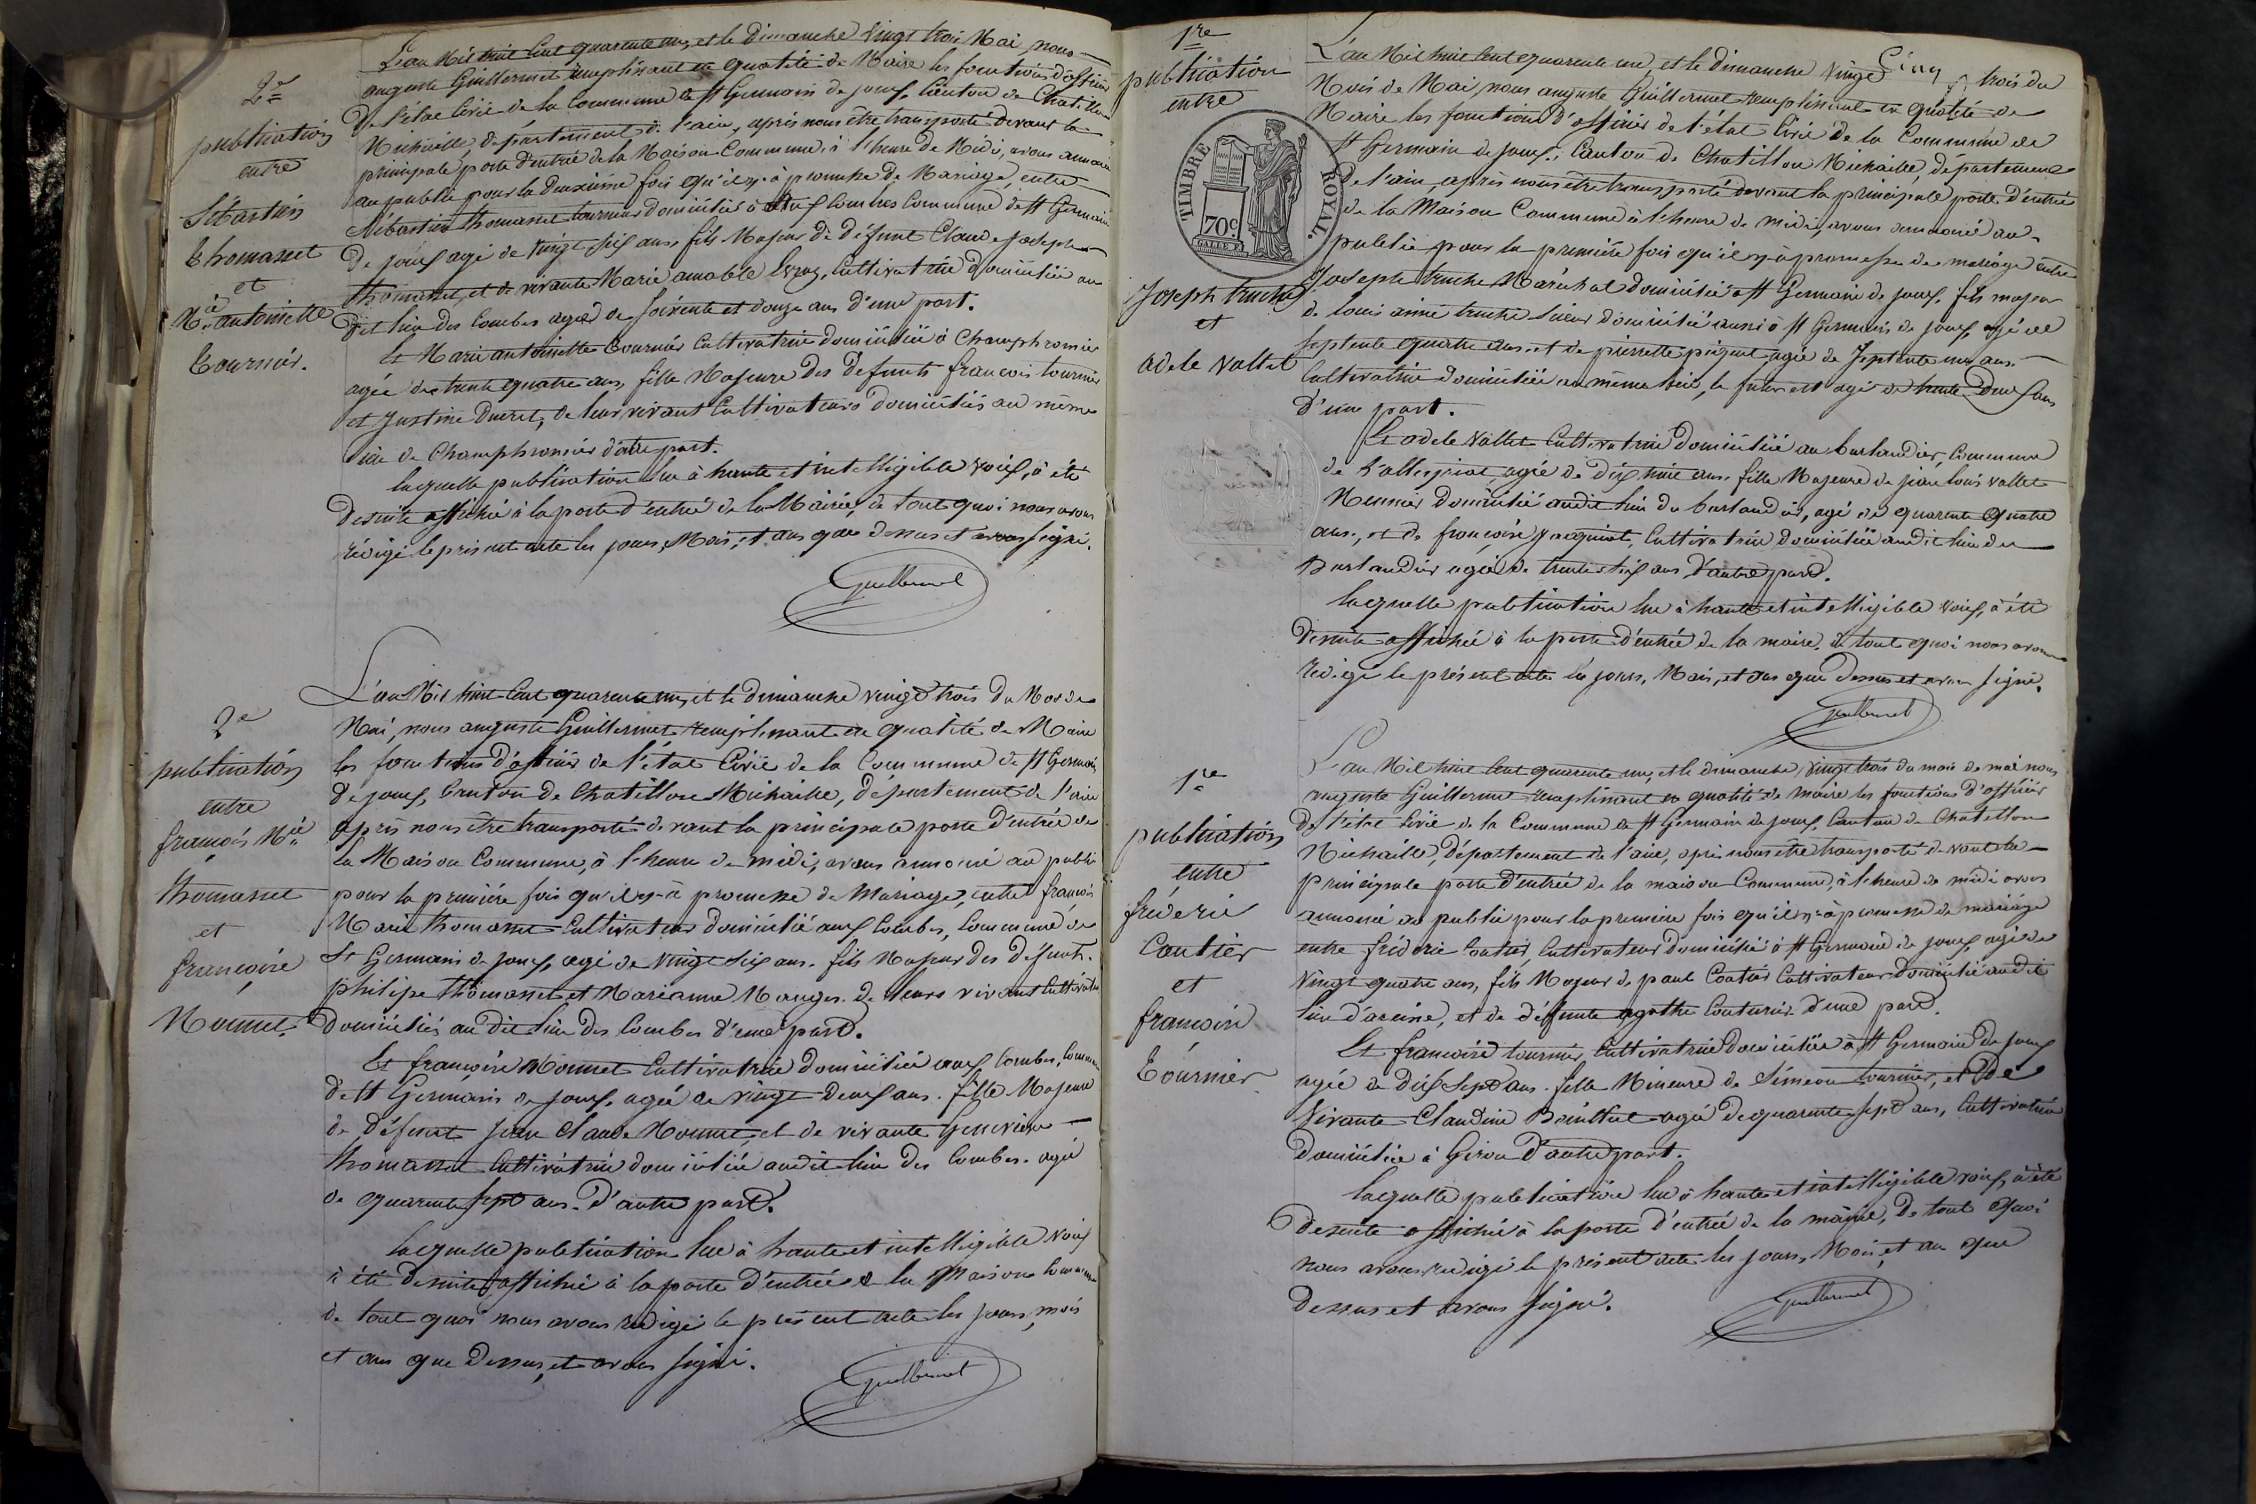 2e
publication
entre
Sébastien
thomasset
et
Mie antoinette
tournier.
L'an Mil huit Cent quarante un, et le dimanche vingt trois Mai, nous
auguste Guillermet remplissant en qualité de Maire les fonctions d'officier
De l'état Civil de la Commune de St Germain de joux, Canton de Chatillon
Michaille, département de l'ain, après nous être transporté devant la
principale porte d'entrée de la Maison Commune, à l'heure de Midi, avons annoncé
au public pour la deuxième fois qu'il y a promesse de Mariage, entre
Sébastien thomasset tourneur domicilié à aux Combes Commune de St Germain
De joux agé de vingt six ans, fils Majeur de défunt Claude joseph
thomasset, et de vivante Marie amable Evroz, Cultivatrice domiciliée au
dit lieu des Combes agée de soixente et douze ans d'une part.
Et Marie antoinette tournier Cultivatrice domiciliée à Champfromier
agée de trente quatre ans, fille Majeure des défunts françois tournier
et Justine Ducret, de leur vivant Cultivateurs domiciliés au même
lieu de Champfromier d'autre part.
laquelle publication lue à haute et intelligible voix, à été
Desuite affichée à la porte d'entrée de la Mairie, de tout quoi nous avons
rédigé le présent acte les jours, Mois, et ans que dessus et avons signé.
Guillermet
2e
publication
entre
françois Mie
thomasset
et
françoise
Monnet
L'an Mil huit Cent quarante un, et le dimanche vingt trois Du Mois de
Mai, nous auguste Guillermet remplissant en qualité de Maire
les fonctions d'officier de l'état Civil de la Commune de St Germain
De joux, Canton de Chatillon Michaille, département de l'ain
après nous être transporté devant la principale porte d'entrée de
la Maison Commune, à l'heure de midi, avons annoncé au public
pour la première fois qu'il y a promesse de Mariage, entre françois
Marie thomasset Cultivateur domicilié aux Combes, Commune de
St Germain de joux, agé de vingt six ans. fils Majeur des défunts
philipe thomasset et Marianne Manger de leurs vivant Cultivateurs
domiciliés au dit lieu des Combes d'une part.
Et françoise Monnet Cultivatrice domiciliée aux Combes, Commune
de St Germain de joux, agée de vingt deux ans. fille Majeure
de défunt jean Claude Monnet, et de vivante Geneviève
thomasset Cultivatrice domiciliée audit lieu des Combes. agée
de quarante sept ans. D'autre part.
laquelle publication lue à haute et intelligible voix
à été desuite affichée à la porte d'entrée de la Maison Commune
de tout quoi nous avons rédigé le présent acte les jours, mois
et ans que dessus, et avons signé.
Guillermet
1re
publication
entre
Joseph truche
et
adele vallet
TIMBRE ROYAL.
70c.
Cinq
L'an Mil huit Cent quarante un, et le dimanche vingt trois du
Mois de Mai, nous auguste Guillermet remplissant en qualité de
Maire les fonctions d'officier de l'état Civil de la Commune de
St Germain de joux, Canton de Chatillon Michaille, département
De l'ain, après nous être transporté devant la principale porte d'entrée
de la Maison Commune à l'heure de midi, avons annoncé au
public pour la première fois qu'il y a promesse de mariage entre
Joseph truche Maréchal domicilié à St Germain de joux, fils majeur
de louis aimé truche domicilié aussi à St Germain de joux, agé de
septente quatre ans et de pierrette agée de Septente un ans
Cultivatrice domiciliée au même lieu, le futur est agé de trente Deux ans
d'une part.
Et adele vallet Cultivatrice domiciliée au burlandier, Commune
de agée de Dix huit ans. fille Majeure de jean louis vallet
Meunier domicilié audit lieu du burlandier, agé de quarente Quatre
ans, et de françoise Cultivatrice domiciliée audit lieu du
Burlandier agée de trente six ans D'autre part.
laquelle publication lue à haute et intelligible voix, à été
desuite affichée à la porte d'entrée de la maire, de tout quoi nous avons
redigé le présent acte les jours, Mois, et ans que dessus et avons signé.
Guillermet
1re
publication
entre
fréderic
Coutier
et
françoise
tournier
L'an Mil huit Cent quarante un, et le dimanche vingt trois du mois de mai nous
auguste Guillermet remplissant en qualité de maire les fonctions d'officier
De l'état Civil de la Commune de St Germain de joux, Canton de Chatillon
Michaille, Département de l'ain, après nous être transporté devant la
principale porte d'entrée de la maison Commune, à l'heure de midi avons
annoncé au public pour la première fois qu'il y a promesse de mariage
entre fréderic Coutier, Cultivateur domicilié à St Germain de joux, agé de
vingt quatre ans, fils Majeur de paul Coutier Cultivateur domicilié audit
lieu et de défunte agathe Couturier d'une part.
Et françoise tournier, Cultivatrice domiciliée à St Germain de joux
agée de dix sept ans. fille Mineure de Siméon tournier, et De
vivante Claudine agée de quarante sept ans, Cultivatrice
domiciliée à Giron D'autre part.
laquelle publication lue à haute et intelligible voix, à été
desuite affichée à la porte d'entrée de la mairie, De tout Quoi
nous avons redigé le présent acte les jours, Mois, et an que
dessus et avons signé.
Guillermet